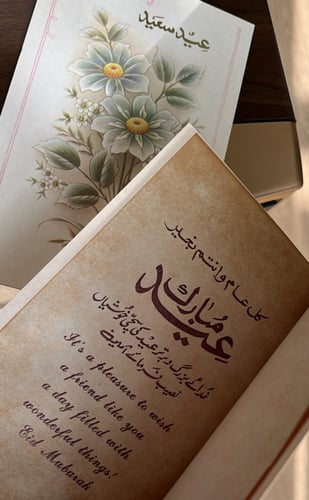 عيد سعيد
كل عام وانتم بخير
عيد مبارك
خدائے بزرگ و برتر عید کی سچی خوشیاں
نصیب فرمائے آمین
It's a pleasure to wish
a friend like you
a day filled with
wonderful things!
Eid Mubarak